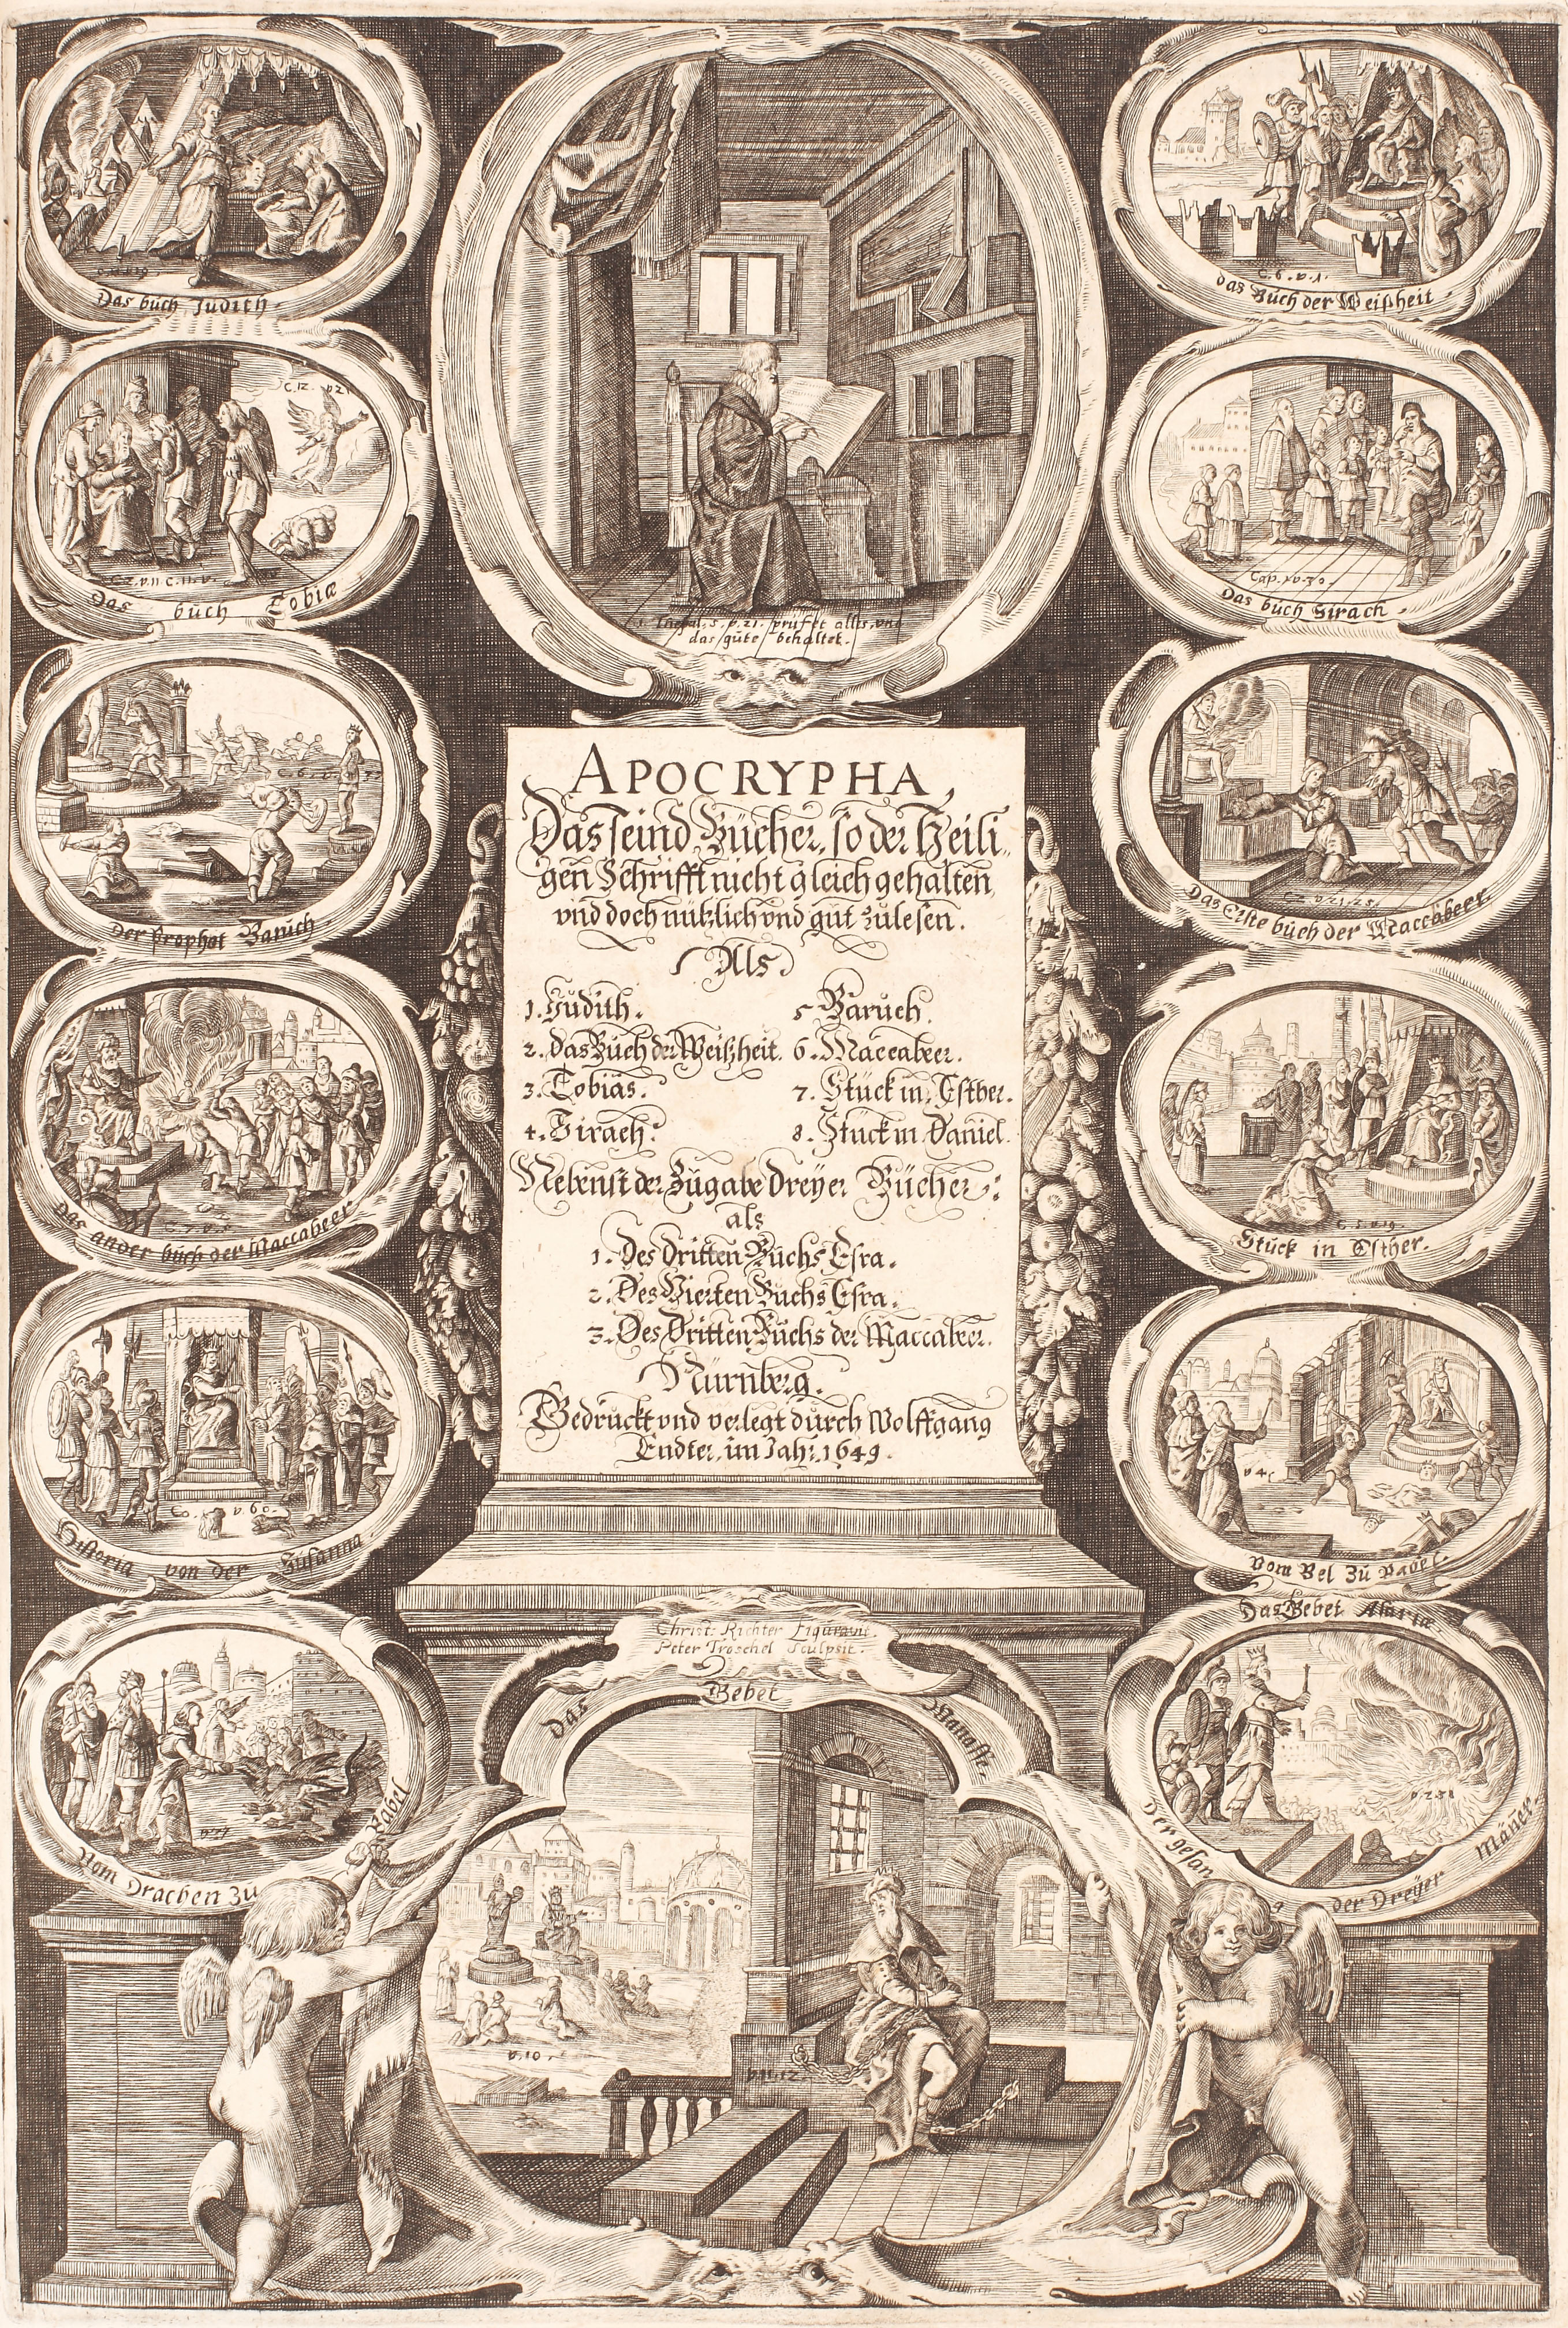 Das buch Judith.
C. 6. v. 1.
das Buch der Weißheit
C. 12. v 2
C. 2. v. 11 C. 11. v.
Das buch Tobiæ
Cap. v. 30.
Das buch Sirach.
v. 21. prüfet alles, vnd
das güte behaltet.
C. 6. v.
Der Prophet Baruch
Das Erste buch der Maccabeer.
APOCRYPHA,
Das seind Bücher, so der Heili
gen Schrifft nicht gleich gehalten
vnd doch nützlich vnd güt zülesen.
Als
1. Judith.
2. Das Buch der Weißheit.
3. Tobias.
4. Sirach.
5 Baruch.
6. Maccabeer.
7. Stück in Esther.
8. Stück in Daniel.
Nebenst der Zügabe Dreyer Bücher:
als
1. Des Dritten Buchs Esra.
2. Des Vierten Buchs Esra.
3. Des Dritten Buchs der Maccabeer.
Nürnberg.
Gedruckt vnd verlegt durch Wolffgang
Endter, im Jahr. 1649.
Das ander buch der Maccabeer
C. 5. v. 19.
Stück in Esther.
v. 60.
Historia von der Susanna
v 4
Vom Bel Zu Babel
Christ. Richter Figuravit.
Peter Troschel Sculpsit.
Das Gebet Manasse.
v. 10.
v. 11. 12.
Vom Drachen zu Babel
Das Gebet Asariæ
Der gesang der Dreyer Mäner